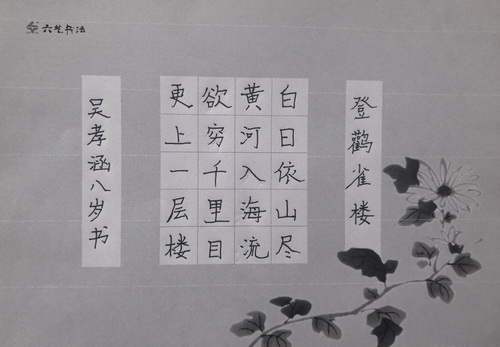 六艺书法
登鹳雀楼
白日依山尽
黄河入海流
欲穷千里目
更上一层楼
吴孝涵八岁书